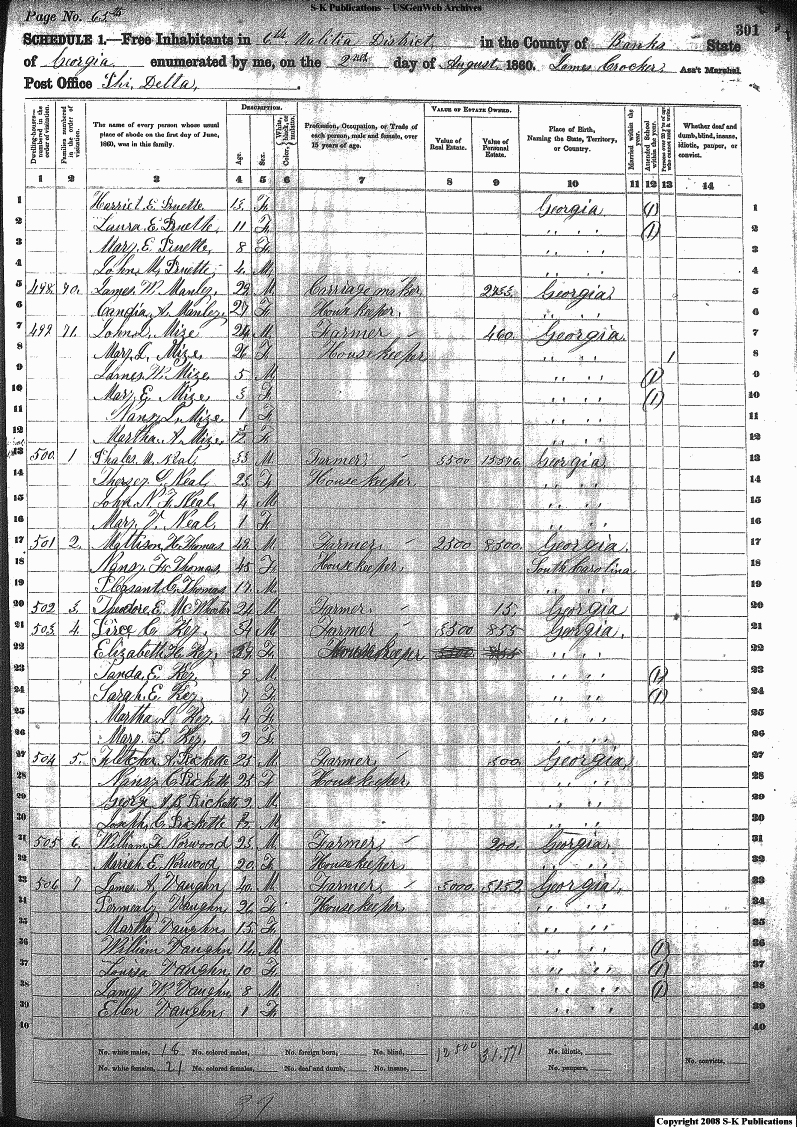 S-K Publications – USGenWeb Archives
Page No. 65th
301
SCHEDULE 1.—Free Inhabitants in 6th Militia District in the County of Banks State
of Georgia enumerated by me, on the 2nd day of August 1860. James Crocker Ass't Marshal.
Post Office Delta,
DESCRIPTION. VALUE OF ESTATE OWNED.
Dwelling-houses—numbered in the order of visitation. Families numbered in the order of visitation. The name of every person whose usual place of abode on the first day of June, 1860, was in this family. Age. Sex. Color, White, black, or mulatto. Profession, Occupation, or Trade of each person, male and female, over 15 years of age. Value of Real Estate. Value of Personal Estate. Place of Birth, Naming the State, Territory, or Country. Married within the year. Attended School within the year. Persons over 20 y'rs of age who cannot read & write. Whether deaf and dumb, blind, insane, idiotic, pauper, or convict.
1 2 3 4 5 6 7 8 9 10 11 12 13 14
1 Harriet E. 13 F. Georgia (1) 1
2 Laura E. 11 F. " " (1) 2
3 Mary E. 8 F. " " 3
4 John M. 4 M. " " 4
5 498 70 James W. Manley 29 M. Carriage maker Georgia 5
6 A. Manley 27 F. House keeper " " 6
7 499 71 John L. Mize 24 M. Farmer 460 Georgia 7
8 Mary L. Mize 26 F. House keeper " " 1 8
9 James W. Mize 5 M. " " (1) 9
10 Mary E. Mize 3 F. " " (1) 10
11 Nancy L. Mize 1 F. " " 11
12 Martha A. Mize F. " " 12
13 500 1 Neal 33 M. Farmer 5500 Georgia 13
14 Neal 25 F. House keeper " " 14
15 John N. F. Neal 4 M " " 15
16 Mary V. Neal 1 F. " " 16
17 501 2 Mattison H. Thomas 42 M. Farmer 2500 8500 Georgia 17
18 Nancy Thomas 45 F. House keeper South Carolina 18
19 Pleasant C. Thomas 17 M. " " 19
20 502 3 Theodore E. McWhorter 24 M. Farmer 15 Georgia 20
21 503 4 Key 34 M. Farmer 5500 855 Georgia 21
22 Elizabeth H. Key F. House keeper " " 22
23 E. Key 9 M. " " (1) 23
24 Sarah E. Key 7 F. " " (1) 24
25 Martha Key 4 F. " " 25
26 Mary L. Key 2 F. " " 26
27 504 5 Fletcher A. 25 M. Farmer 500 Georgia 27
28 Nancy C. 25 F. House keeper " " 28
29 2 M. " " 29
30 Joseph C. M. " " 30
31 505 6 William Norwood 25 M. Farmer 200 Georgia 31
32 E. Norwood 20 F. House keeper " " 32
33 506 7 James A. Vaughn 40 M. Farmer 5000 5152 Georgia 33
34 Vaughn 26 F. House keeper " " 34
35 Martha Vaughn 15 F. " " 35
36 William Vaughn 14 M " " (1) 36
37 Louisa Vaughn 10 F. " " (1) 37
38 James W. Vaughn 8 M. " " (1) 38
39 Ellen Vaughn 1 F. " " 39
40 40
No. white males, 18 No. colored males, No. foreign born, No. blind, 31,771 No. idiotic,
No. white females, 21 No. colored females, No. deaf and dumb, No. insane, No. paupers, No. convicts,
39
Copyright 2008 S-K Publications